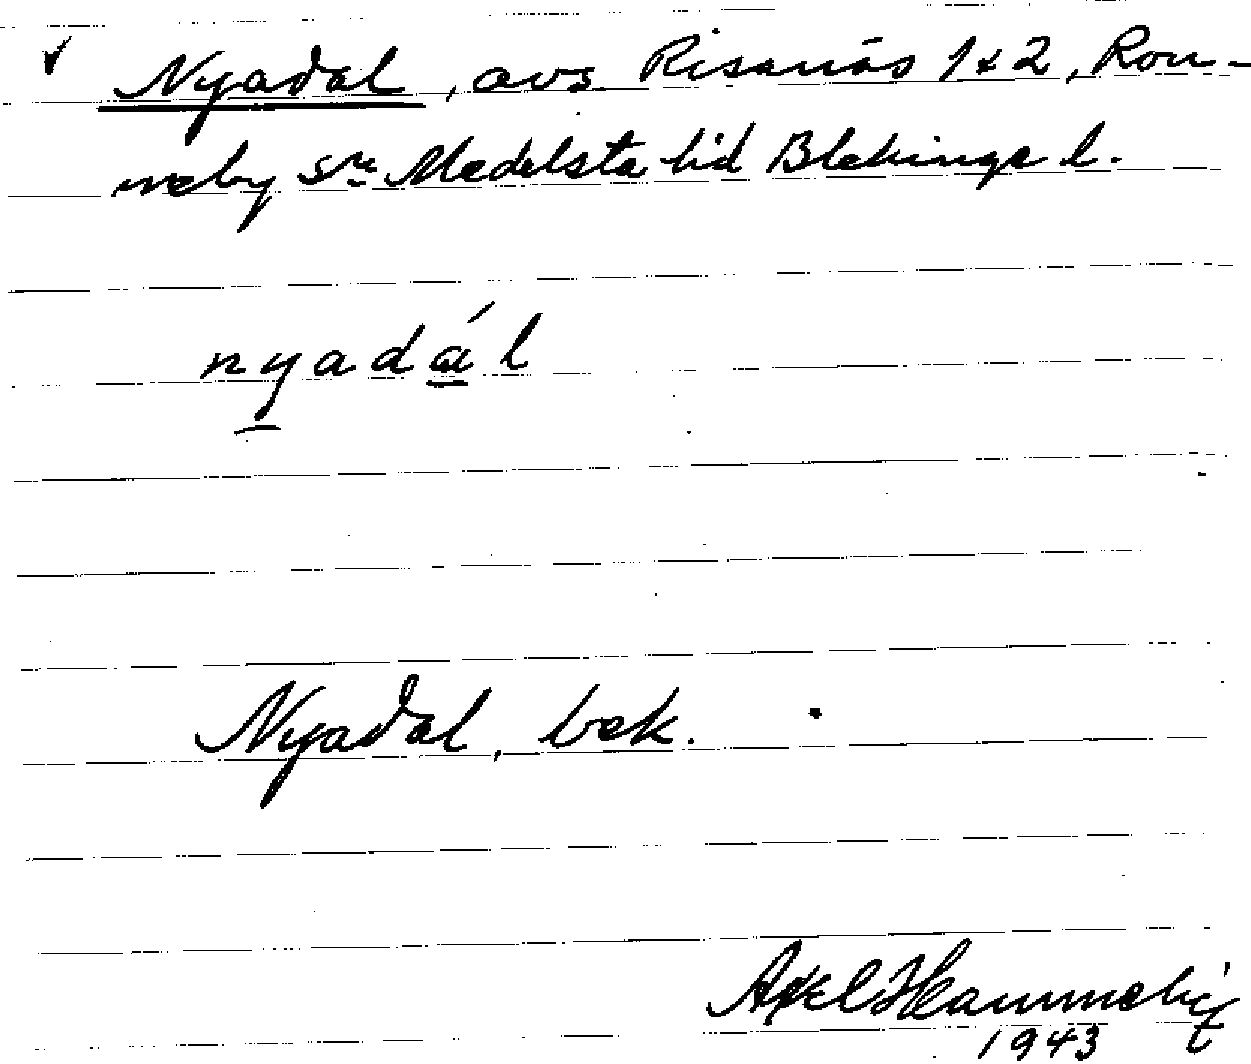 Nyadal, avs. Risanäs 1+2, Ron-
neby sn Medelsta hd Blekinge l.
nyadál
Nyadal, bek.
Axel
1943